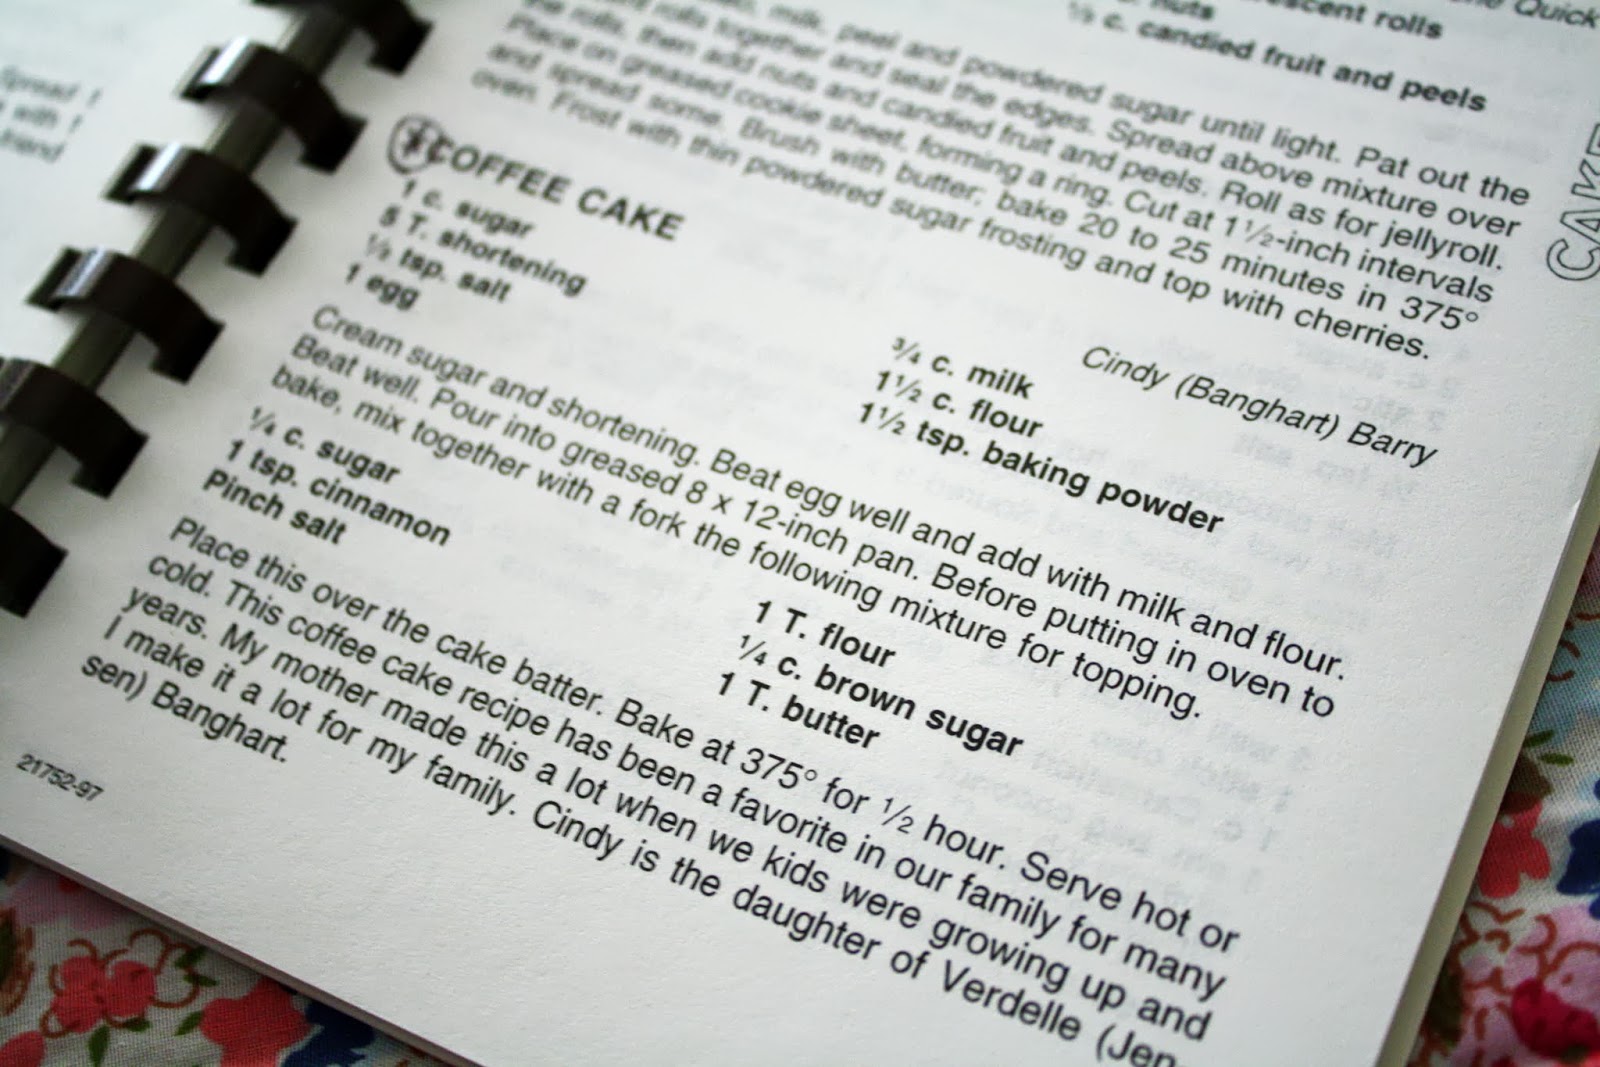 Spread
with
friend
Quick
nuts
crescent rolls
⅓ c. candied fruit and peels
milk, peel and powdered sugar until light. Pat out the
rolls together and seal the edges. Spread above mixture over
the rolls, then add nuts and candied fruit and peels. Roll as for jellyroll.
Place on greased cookie sheet, forming a ring. Cut at 1½-inch intervals
and spread some. Brush with butter; bake 20 to 25 minutes in 375°
oven. Frost with thin powdered sugar frosting and top with cherries.
Cindy (Banghart) Barry
COFFEE CAKE
1 c. sugar
5 T. shortening
½ tsp. salt
1 egg
¾ c. milk
1½ c. flour
1½ tsp. baking powder
Cream sugar and shortening. Beat egg well and add with milk and flour.
Beat well. Pour into greased 8 x 12-inch pan. Before putting in oven to
bake, mix together with a fork the following mixture for topping.
¼ c. sugar
1 tsp. cinnamon
Pinch salt
1 T. flour
¼ c. brown sugar
1 T. butter
Place this over the cake batter. Bake at 375° for ½ hour. Serve hot or
cold. This coffee cake recipe has been a favorite in our family for many
years. My mother made this a lot when we kids were growing up and
I make it a lot for my family. Cindy is the daughter of Verdelle (Jen-
sen) Banghart.
21752-97
CAKE